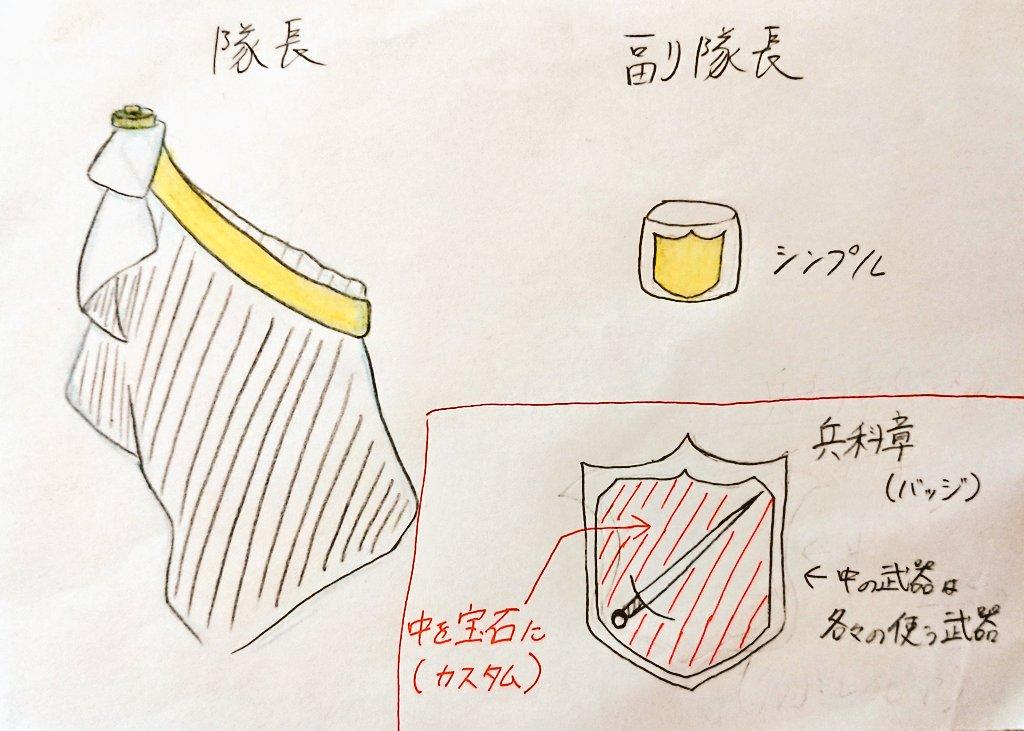 隊長
副隊長
シンプル
兵科章
(バッジ)
←中の武器は
各々の使う武器
中を宝石に
(カスタム)